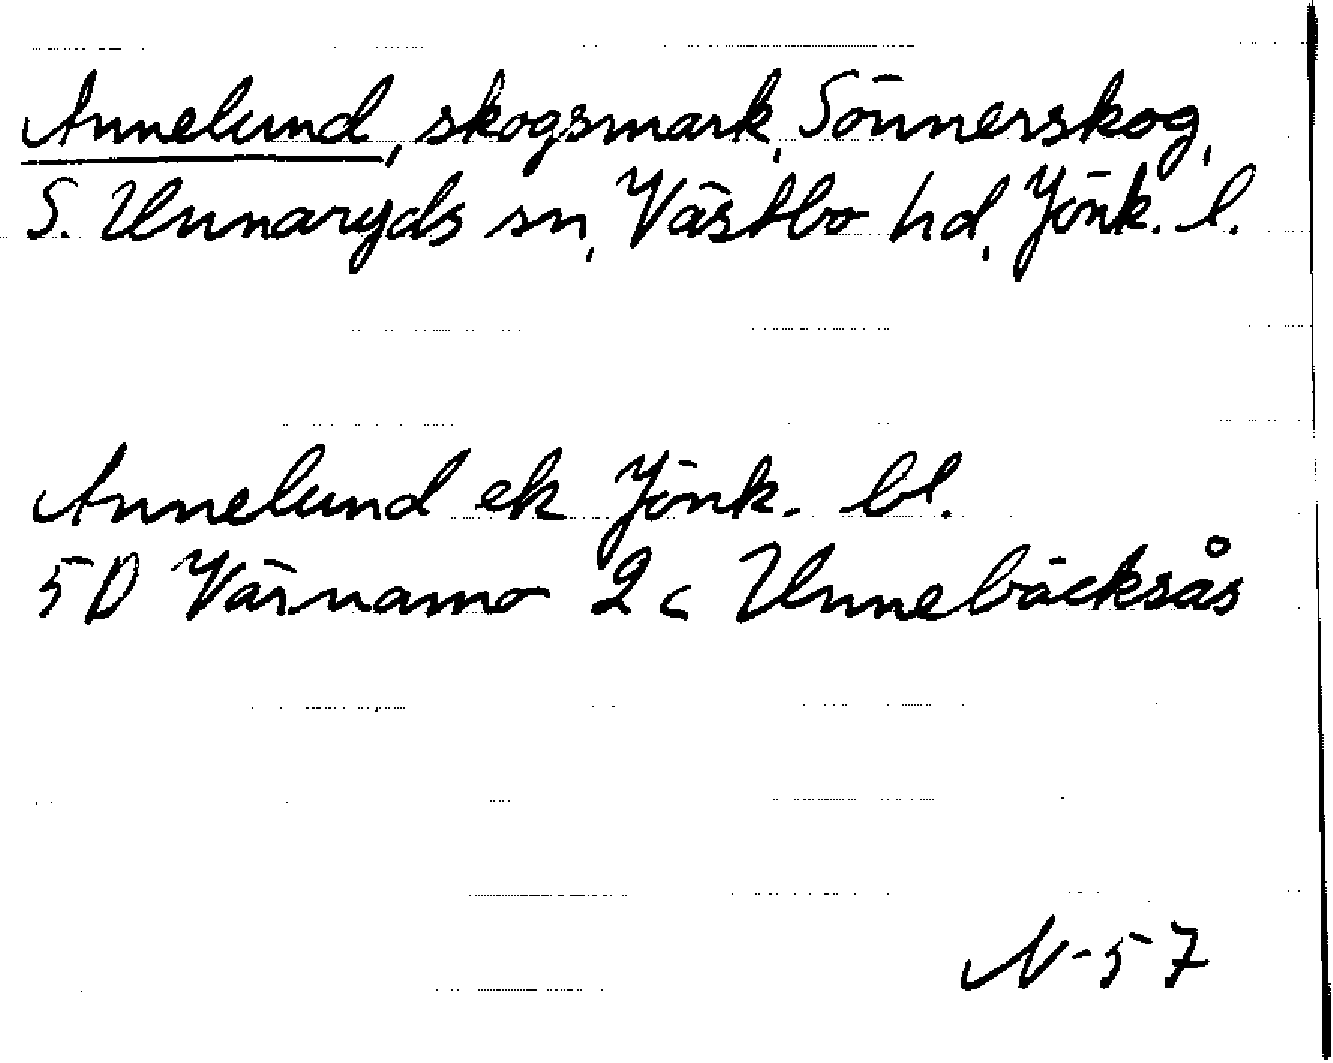 Annelund, skogsmark, Sönnerskog,
S. Unnaryds sn, Västbo hd, Jönk. l.
Annelund ek Jönk. bl.
5D Värnamo 2c Unnebäcksås
N-57